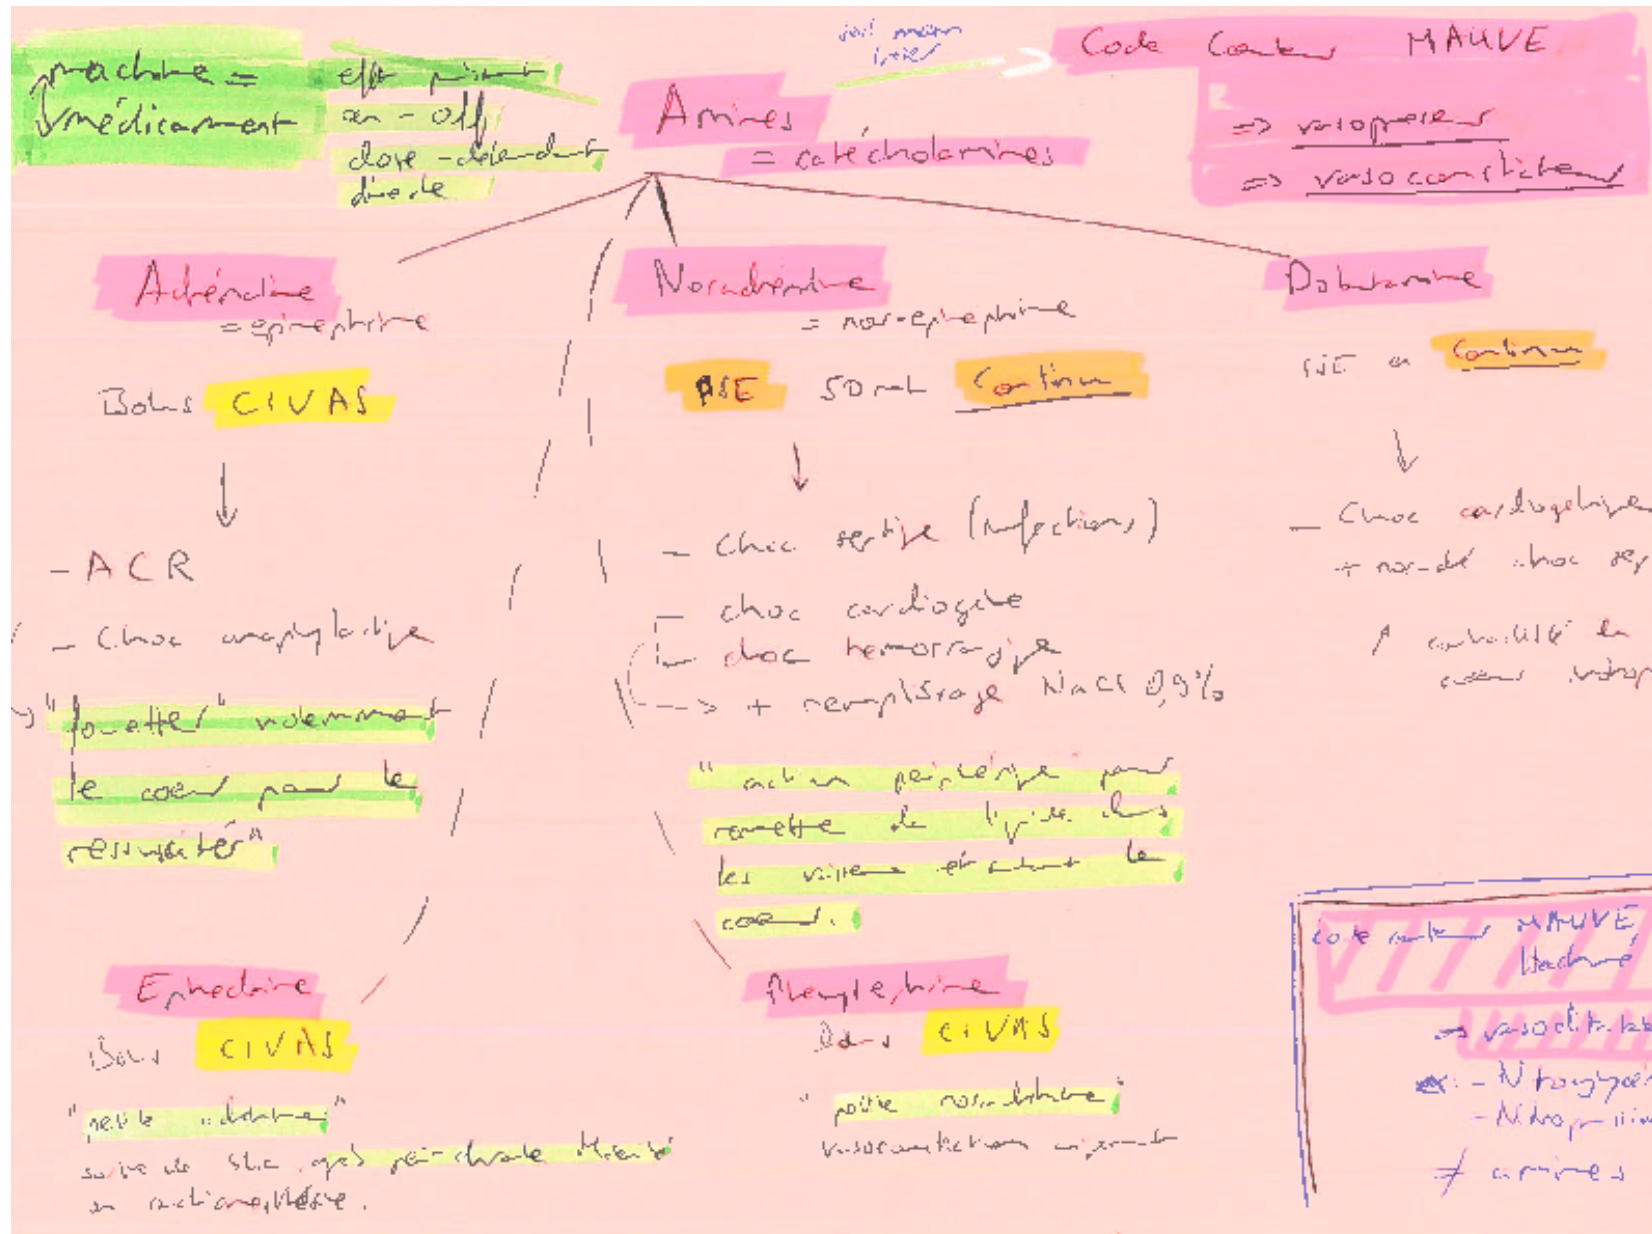 machine =
médicament
effet puissant
on - off
dose-dépendant
directe
Amines
= catécholamines
Code Couleur MAUVE
=> vasopresseur
=> vasoconstricteur
Adrénaline
= epinephrine
Bolus CIVAS
- ACR
- Choc anaphylactique
"fouetter" violemment
le coeur pour le
ressusciter"
Noradrénaline
= nor-epinephrine
PSE 50 ml Continu
- Choc septique (infections)
- choc cardiogène
- choc hemorragique
-> + remplissage NaCl 0,9%
"action périphérique pour
remettre du liquide dans
les vaisseaux et autour le
coeur.
Dobutamine
en Continu
- Choc cardiogénique
+ nor-adré choc sep
↗ contractilité du
coeur inotrop
Ephedrine
Bolus CIVAS
"petite adrénaline"
Phenylephrine
Bolus CIVAS
"petite noradrénaline"
vasoconstriction
Code couleur MAUVE
Hachuré
=> vasodilatat
- Nitroglycér
- Nitroprussi
≠ amines